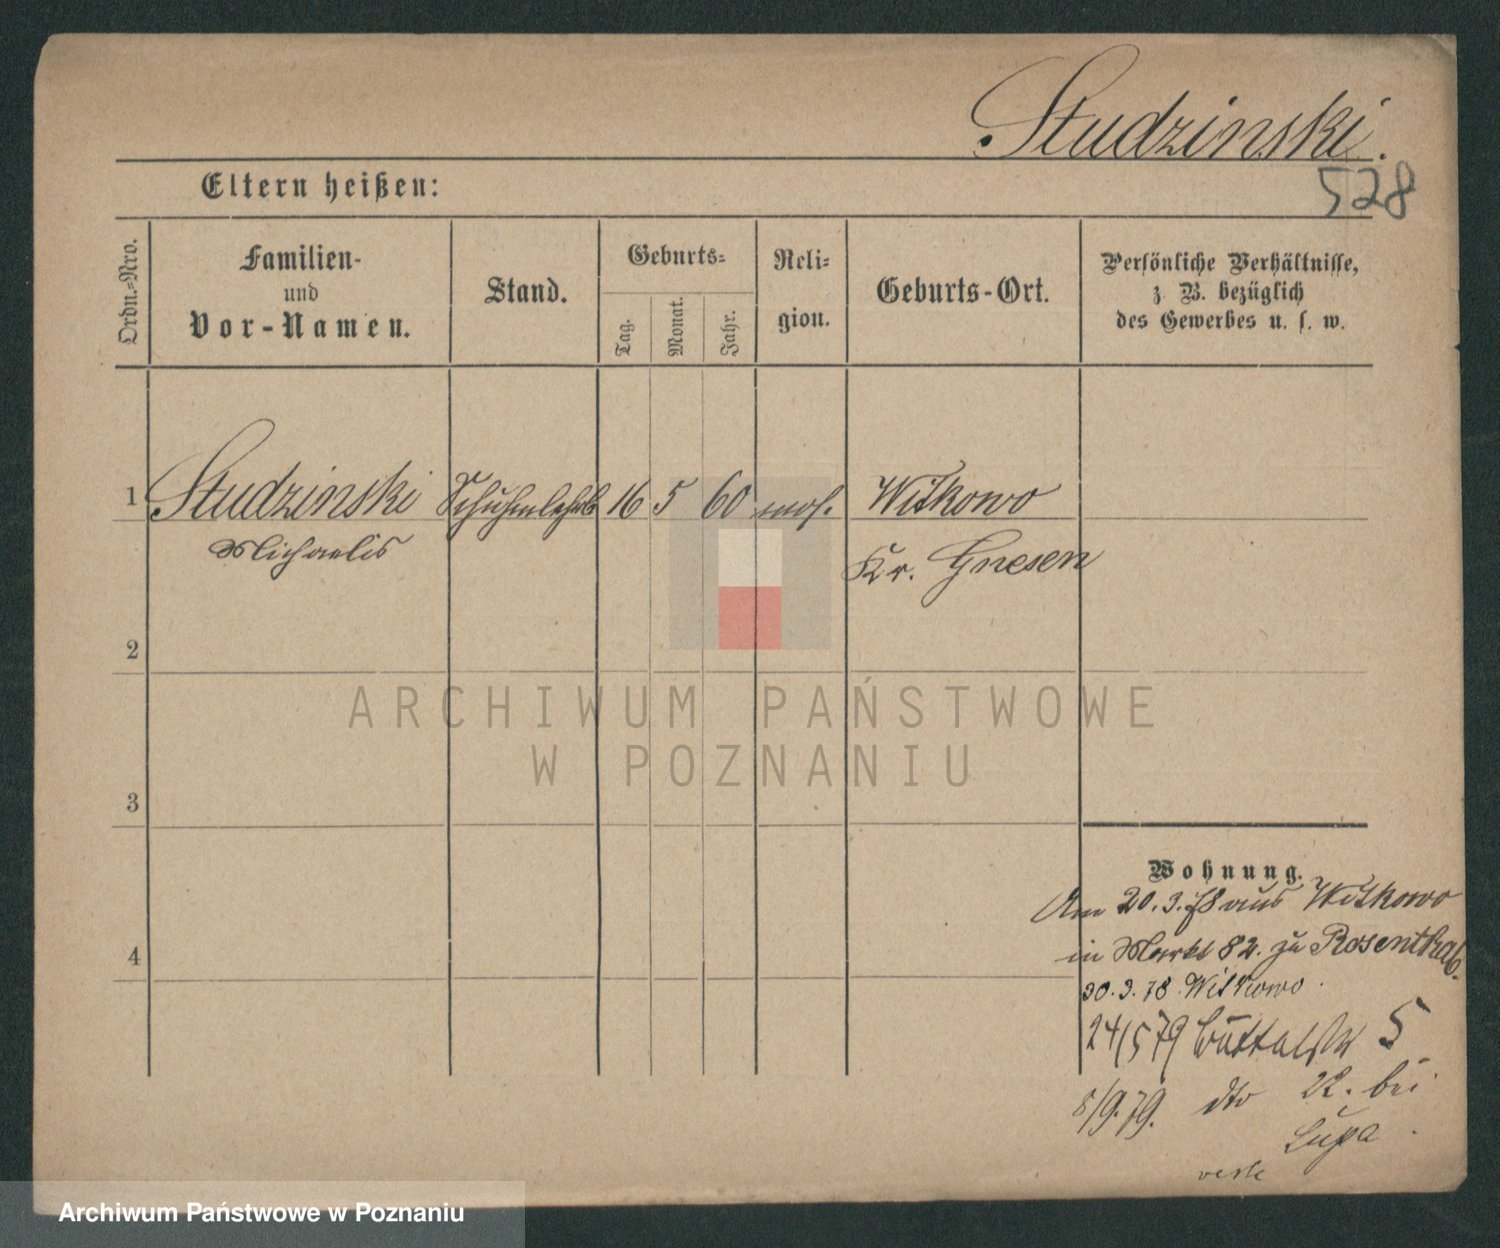 Studzinski.
528
Eltern heißen:
Ordn.-Nro.
Familien-
und
Vor-Namen.
Stand.
Geburts-
Tag.
Monat.
Jahr.
Reli-
gion.
Geburts-Ort.
Persönliche Verhältnisse,
z. B. bezüglich
des Gewerbes u. s. w.
1 Studzinski 16 5 60 mos. Witkowo
Michaelis Kr. Gnesen
2
3
4
ARCHIWUM PAŃSTWOWE
W POZNANIU
Wohnung.
Am 20.3.78 aus Witkowo
in Markt 82. zu Rosenthal.
30.3.78 Witkowo.
24/5 79 5
8/9.79. dto 22. bei
Lupa.
Archiwum Państwowe w Poznaniu